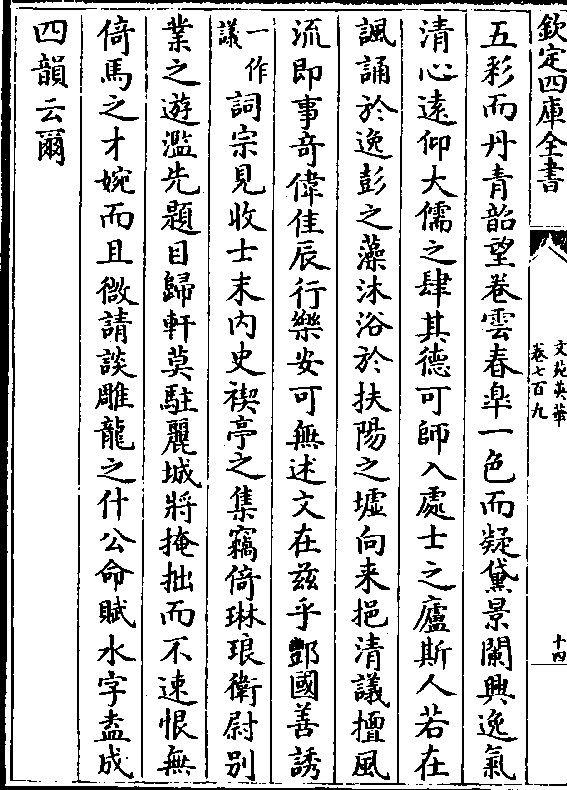 欽定四庫全書
文苑英華
卷七百九
十四
五彩而丹青韶望卷雲春皐一色而凝黛景闌興逸氣
清心遠仰大儒之肆其德可師入處士之廬斯人若在
諷誦於逸彭之藻沐浴於扶陽之墟向来挹清議擅風
流即事竒偉佳辰行樂安可無述文在兹乎酆國善誘
一作
議
詞宗見收士末内史禊亭之集竊倚琳琅衛尉别
業之遊濫先題目歸軒莫駐麗城將掩拙而不速恨無
倚馬之才婉而且微請談雕龍之什公命賦水字盍成
四韻云爾